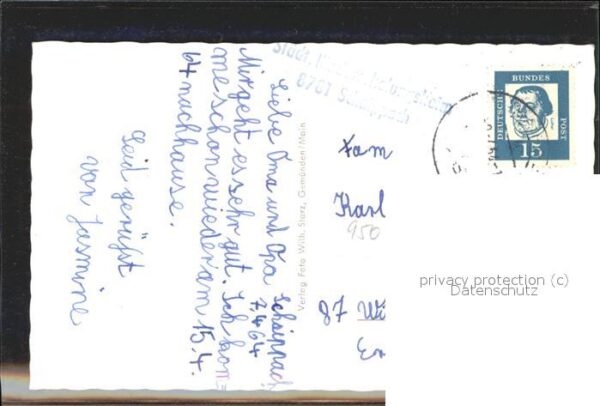 Schaippach
7.4.64
Liebe Oma und Opa
Mir geht es sehr gut. Ich kom=
me schon wieder am 15.4.
64 nachhause.
Seid gerüßt
von Jasmine
Verlag Foto Wilh. Sturz, Gemünden/Main
8701 Schaippach
DEUTSCHE
BUNDES
POST
15
Fam
Karl
950
87 Wü
privacy protection (c)
Datenschutz